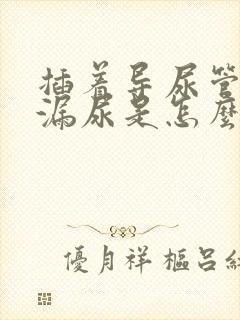 插着导尿管
漏尿是怎麼
優月祥樞呂